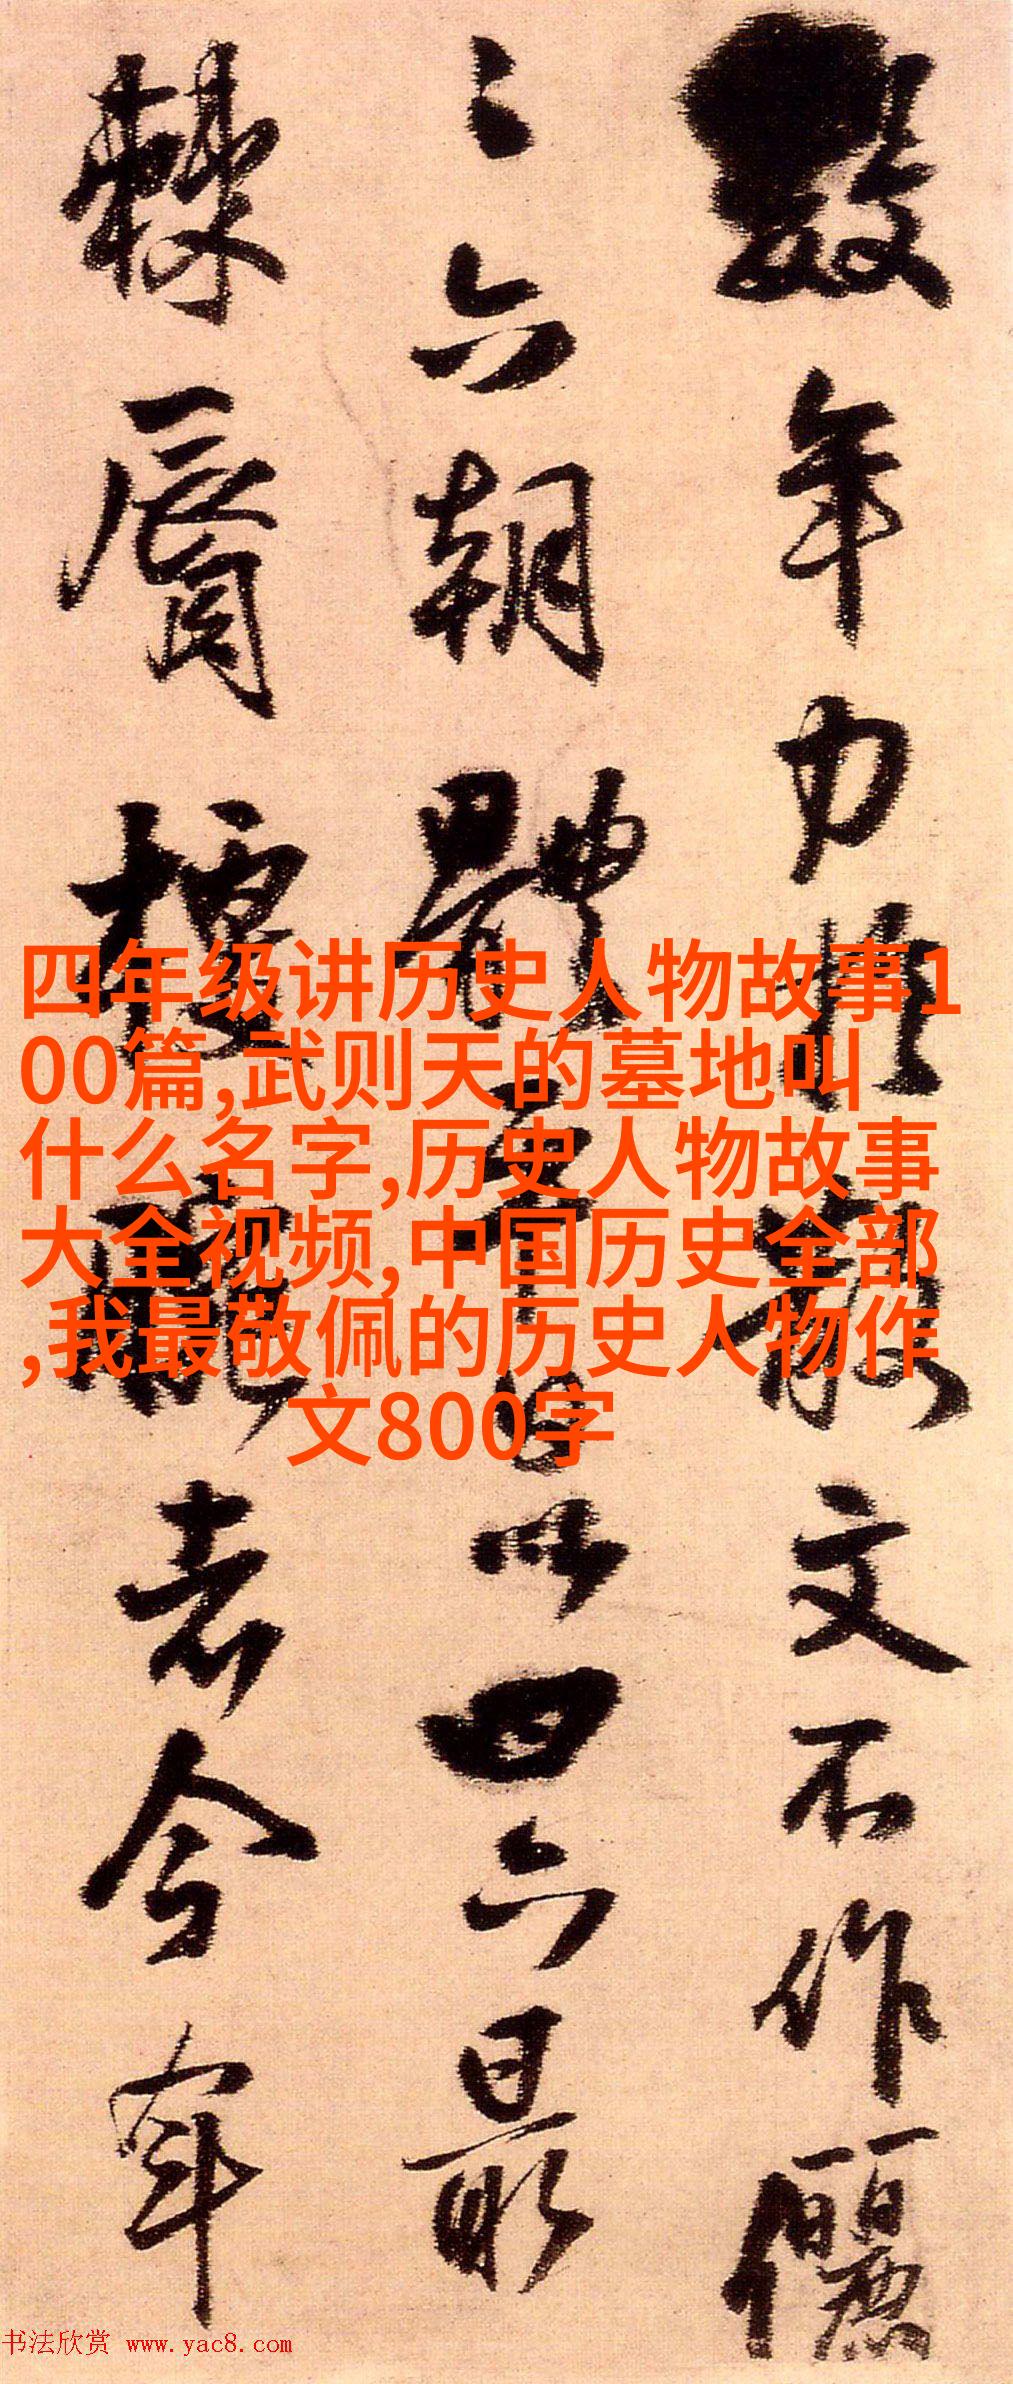 數年力散文不作儷
六朝體平日以四六最
棘脣老今年
四年级讲历史人物故事1
00篇,武则天的墓地叫
什么名字,历史人物故事
大全视频,中国历史全部
,我最敬佩的历史人物作
文800字
书法欣赏 www.yac8.com